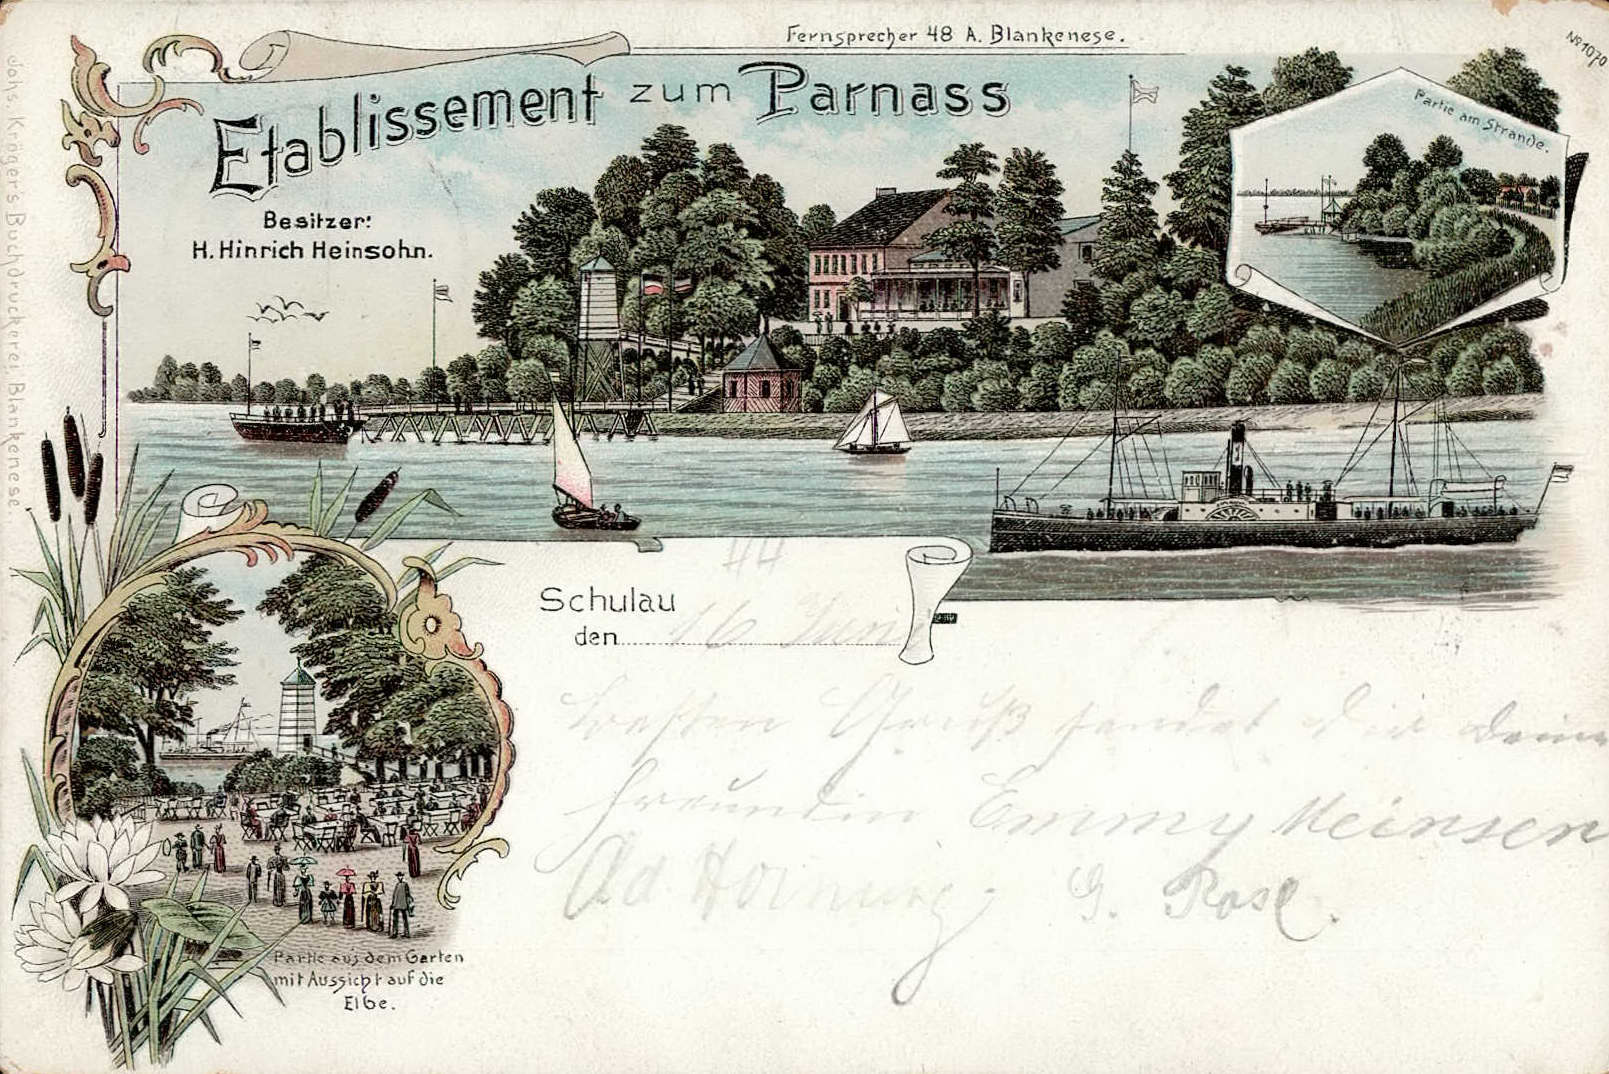 Fernsprecher 48 A. Blankenese.
No 1070
Etablissement zum Parnass
Besitzer:
H. Hinrich Heinsohn.
Partie am Strande.
Johs. Krögers Buchdruckerei, Blankenese.
Schulau
den 16 Juni
Besten Gruß sendet dir deine
Freundin Emmy Meinsen
Ad Hornung. G. Rose.
Partie aus dem Garten
mit Aussicht auf die
Elbe.